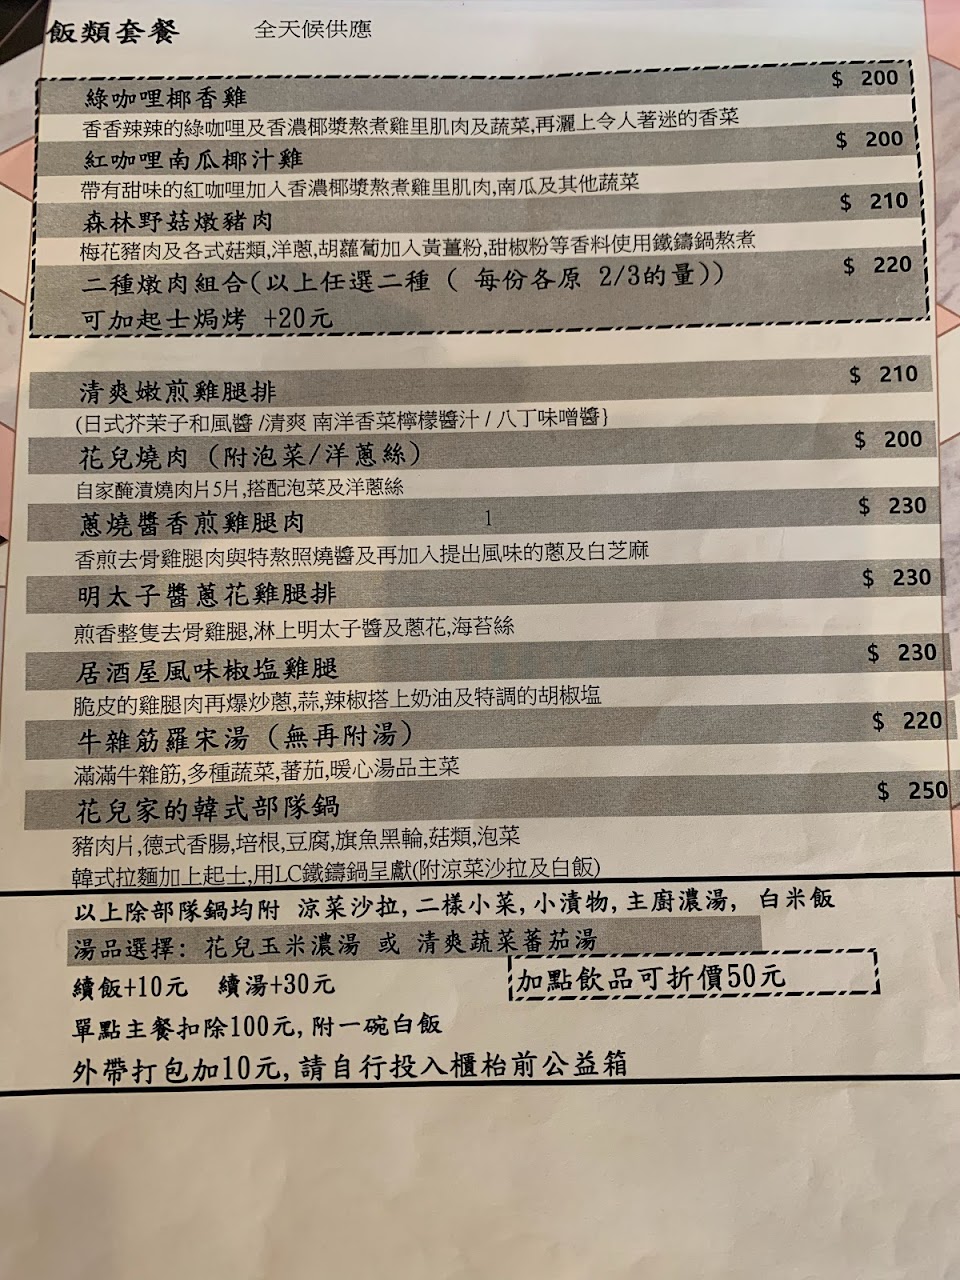 飯類套餐 全天候供應
綠咖哩椰香雞 $ 200
香香辣辣的綠咖哩及香濃椰漿熬煮雞里肌肉及蔬菜,再灑上令人著迷的香菜
紅咖哩南瓜椰汁雞 $ 200
帶有甜味的紅咖哩加入香濃椰漿熬煮雞里肌肉,南瓜及其他蔬菜
森林野菇燉豬肉 $ 210
梅花豬肉及各式菇類,洋蔥,胡蘿蔔加入黃薑粉,甜椒粉等香料使用鐵鑄鍋熬煮
二種燉肉組合(以上任選二種 ( 每份各原 2/3的量)) $ 220
可加起士焗烤 +20元
清爽嫩煎雞腿排 $ 210
(日式芥茉子和風醬 /清爽 南洋香菜檸檬醬汁 / 八丁味噌醬}
花兒燒肉 (附泡菜/洋蔥絲) $ 200
自家醃漬燒肉片5片,搭配泡菜及洋蔥絲
蔥燒醬香煎雞腿肉 1 $ 230
香煎去骨雞腿肉與特熬照燒醬及再加入提出風味的蔥及白芝麻
明太子醬蔥花雞腿排 $ 230
煎香整隻去骨雞腿,淋上明太子醬及蔥花,海苔絲
居酒屋風味椒塩雞腿 $ 230
脆皮的雞腿肉再爆炒蔥,蒜,辣椒搭上奶油及特調的胡椒塩
牛雜筋羅宋湯 (無再附湯) $ 220
滿滿牛雜筋,多種蔬菜,蕃茄,暖心湯品主菜
花兒家的韓式部隊鍋 $ 250
豬肉片,德式香腸,培根,豆腐,旗魚黑輪,菇類,泡菜
韓式拉麵加上起士,用LC鐵鑄鍋呈獻(附涼菜沙拉及白飯)
以上除部隊鍋均附 涼菜沙拉,二樣小菜,小漬物,主廚濃湯, 白米飯
湯品選擇: 花兒玉米濃湯 或 清爽蔬菜蕃茄湯
續飯+10元 續湯+30元 加點飲品可折價50元
單點主餐扣除100元,附一碗白飯
外帶打包加10元,請自行投入櫃枱前公益箱